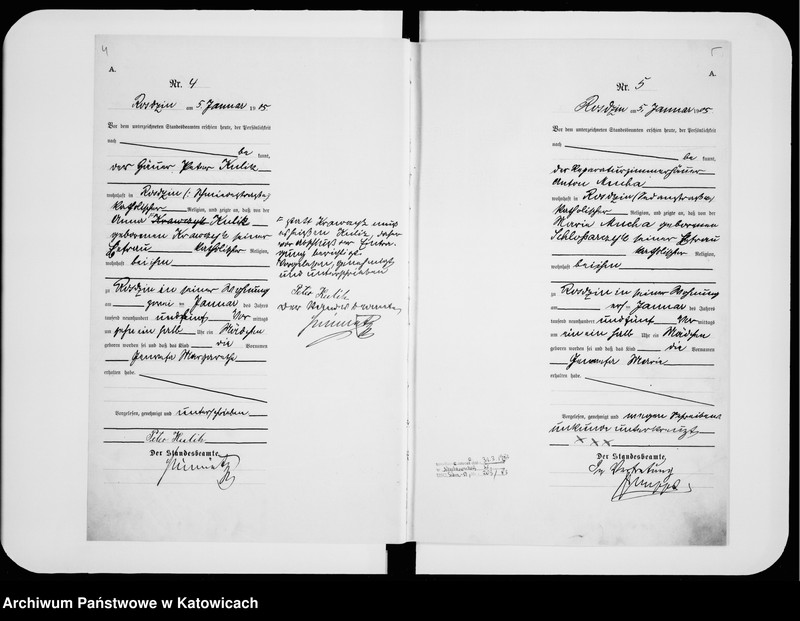 4
A.
Nr. 4
Rosdzin am 5. Januar 1905
Vor dem unterzeichneten Standesbeamten erschien heute, der Persönlichkeit
nach
be kannt,
der Häuer Peter Kulik
wohnhaft in Rosdzin
katholischer Religion, und zeigte an, daß von der
Anna Krawczyk Kulik
geborenen Krawczyk seiner
Ehefrau katholischer Religion,
wohnhaft bei ihm
zu Rosdzin in seiner Wohnung
am zwei Januar des Jahres
tausend neunhundert und fünf Vor mittags
um zehn ein halb Uhr ein Mädchen
geboren worden sei und daß das Kind die Vornamen
Genowefa Margarethe
erhalten habe.
Vorgelesen, genehmigt und unterschrieben
Peter Kulik
Der Standesbeamte.
statt Krawczyk muß
es heißen Kulik, daher
vor Abschluß der Eintra-
gung berichtigt.
Vorgelesen, genehmigt
und unterschrieben
Peter Kulik
Der Standesbeamte
5
A.
Nr. 5
Rosdzin am 5. Januar 1905
Vor dem unterzeichneten Standesbeamten erschien heute, der Persönlichkeit
nach
be kannt,
der Reparaturzimmerhäuer
Anton Mucha
wohnhaft in Rosdzin
katholischer Religion, und zeigte an, daß von der
Marie Mucha geborenen
seiner Ehefrau
katholischer Religion,
wohnhaft bei ihm
zu Rosdzin in seiner Wohnung
am Januar des Jahres
tausend neunhundert und fünf Vor mittags
um ein ein halb Uhr ein Mädchen
geboren worden sei und daß das Kind die Vornamen
Genowefa Marie
erhalten habe.
Vorgelesen, genehmigt und wegen Schreibens
unkunde unterkreuzt
x x x
Der Standesbeamte.
In Vertretung
Archiwum Państwowe w Katowicach